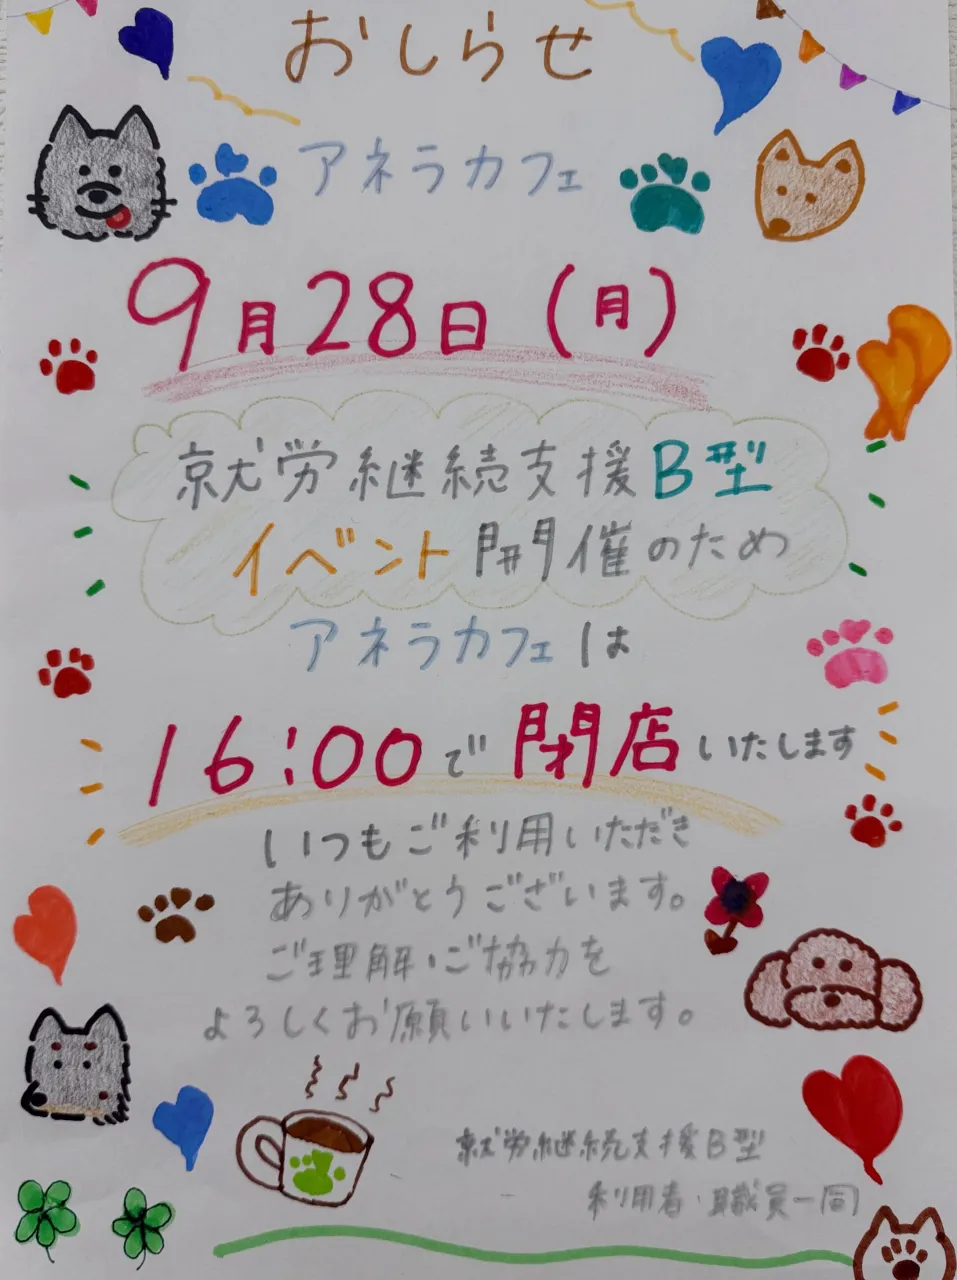 おしらせ
アネラカフェ
9月28日(月)
就労継続支援B型
イベント開催のため
アネラカフェは
16:00で閉店いたします
いつもご利用いただき
ありがとうございます。
ご理解・ご協力を
よろしくお願いいたします。
就労継続支援B型
利用者・職員一同